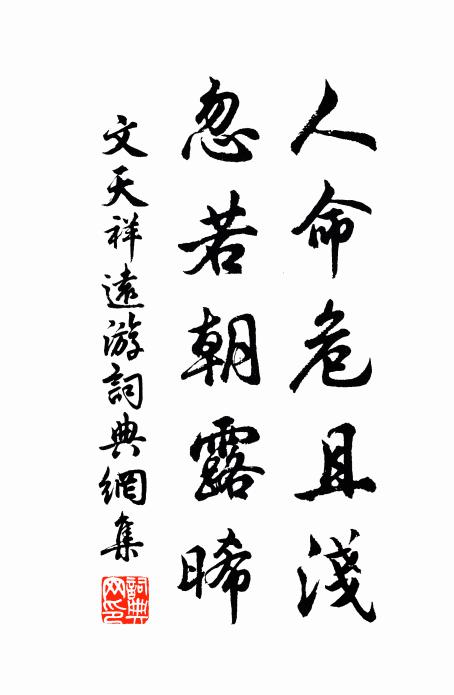 人命危且淺
忽若朝露晞
文天祥遠游詞典網集
詞典網印